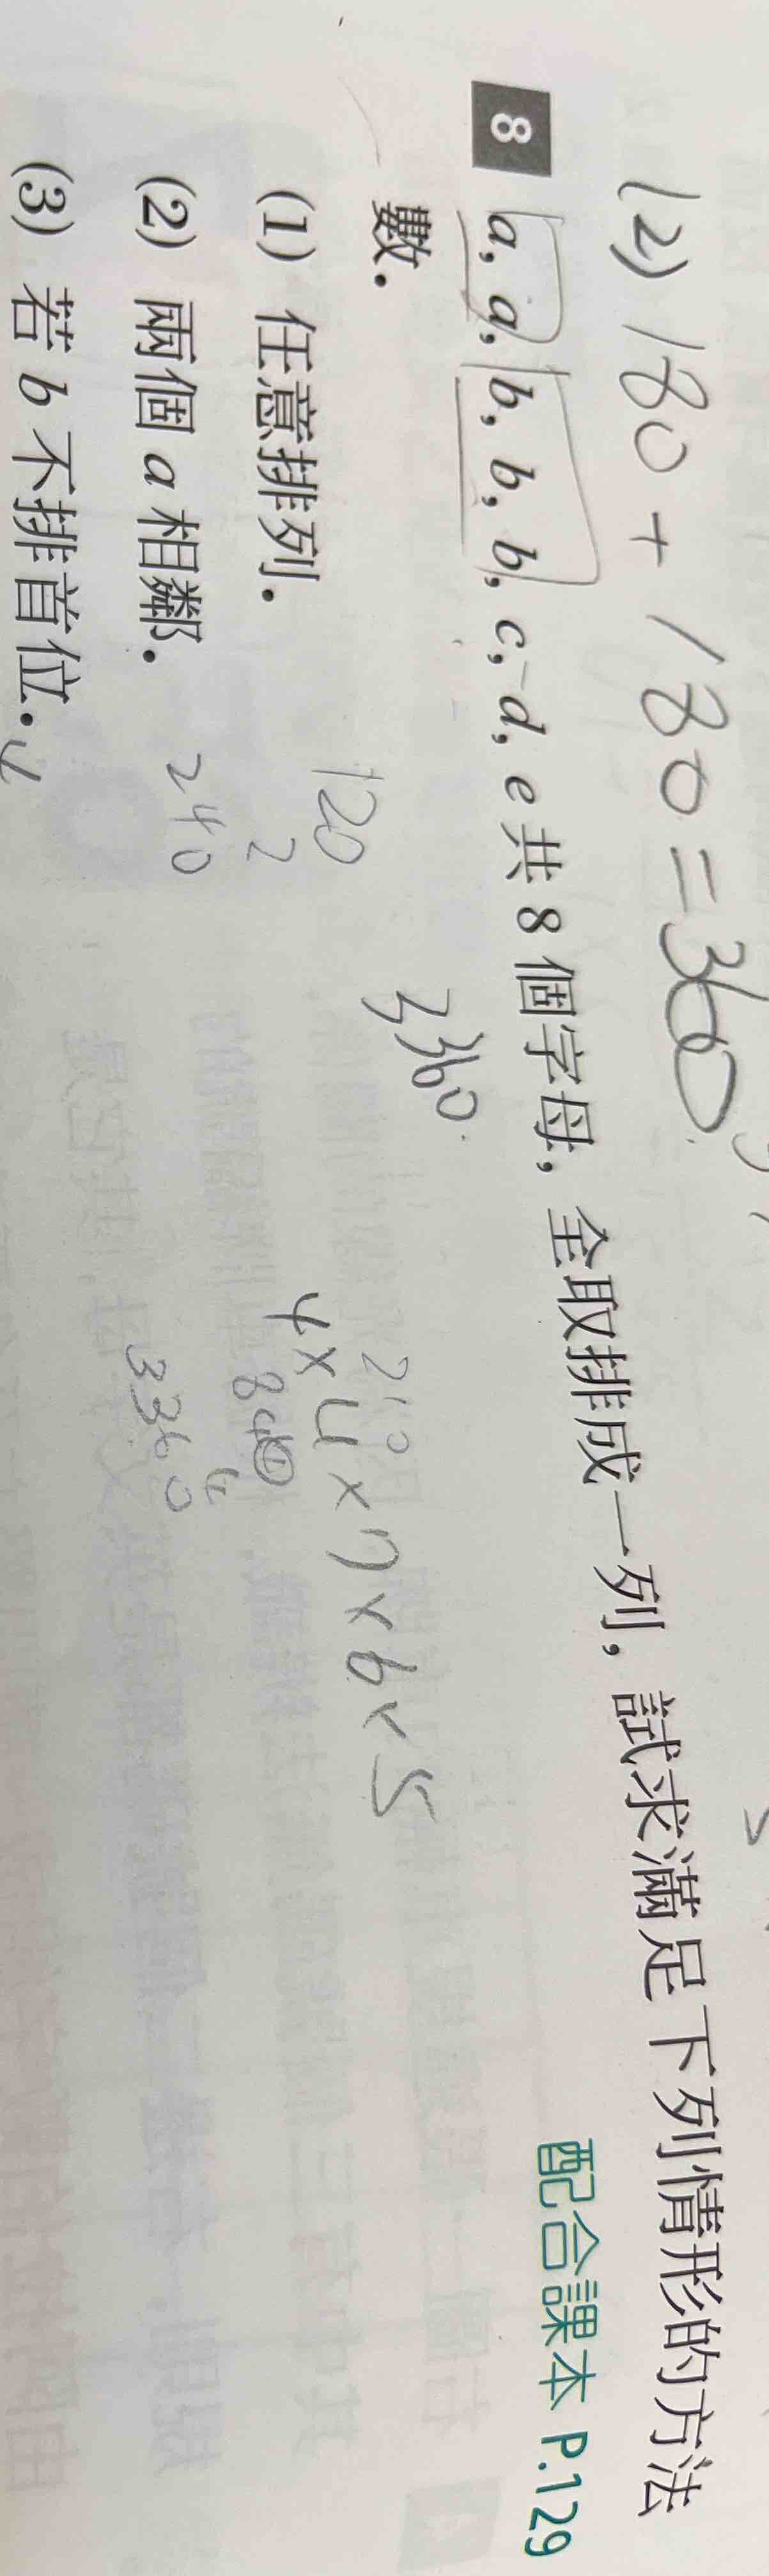 (2) 180 + 180 = 360
配合課本 P.129
8 a, a, b, b, b, c, d, e 共 8 個字母, 全取排成一列, 試求滿足下列情形的方法
數.
3360
(1) 任意排列.
120
2
4×4×7×6×5
210
840
4
3360
(2) 兩個 a 相鄰.
240
(3) 若 b 不排首位.